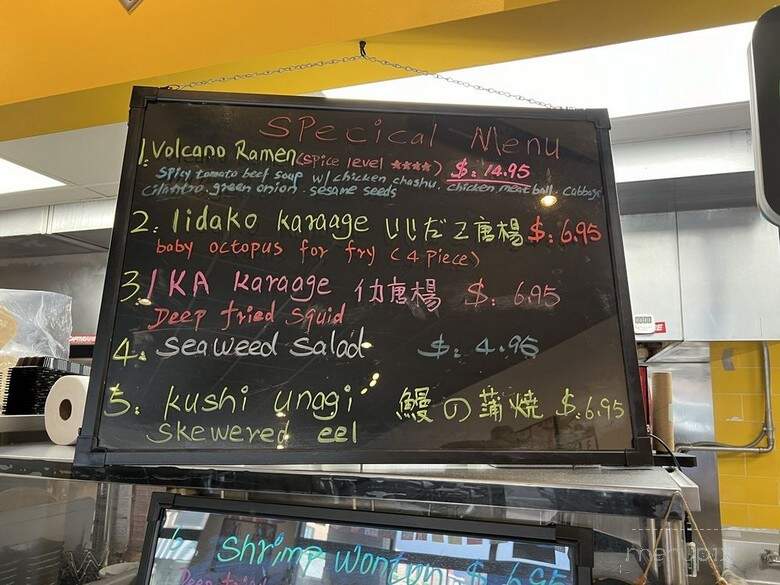 SPecical Menu
1. Volcano Ramen (spice level ★★★★) $: 14.95
Spicy tomato beef soup w/ chicken chashu, chicken meat ball, cabbage
cilantro. green onion. sesame seeds
2. Iidako karaage いいだこ唐楊 $: 6.95
baby octopus for fry (4 piece)
3. IKA karaage イカ唐楊 $: 6.95
Deep fried squid
4. Seaweed Salad $: 4.95
5. kushi unagi 鰻の蒲焼 $: 6.95
skewered eel
6. Shrimp wonton $ 6.95
Deep fried
menupix